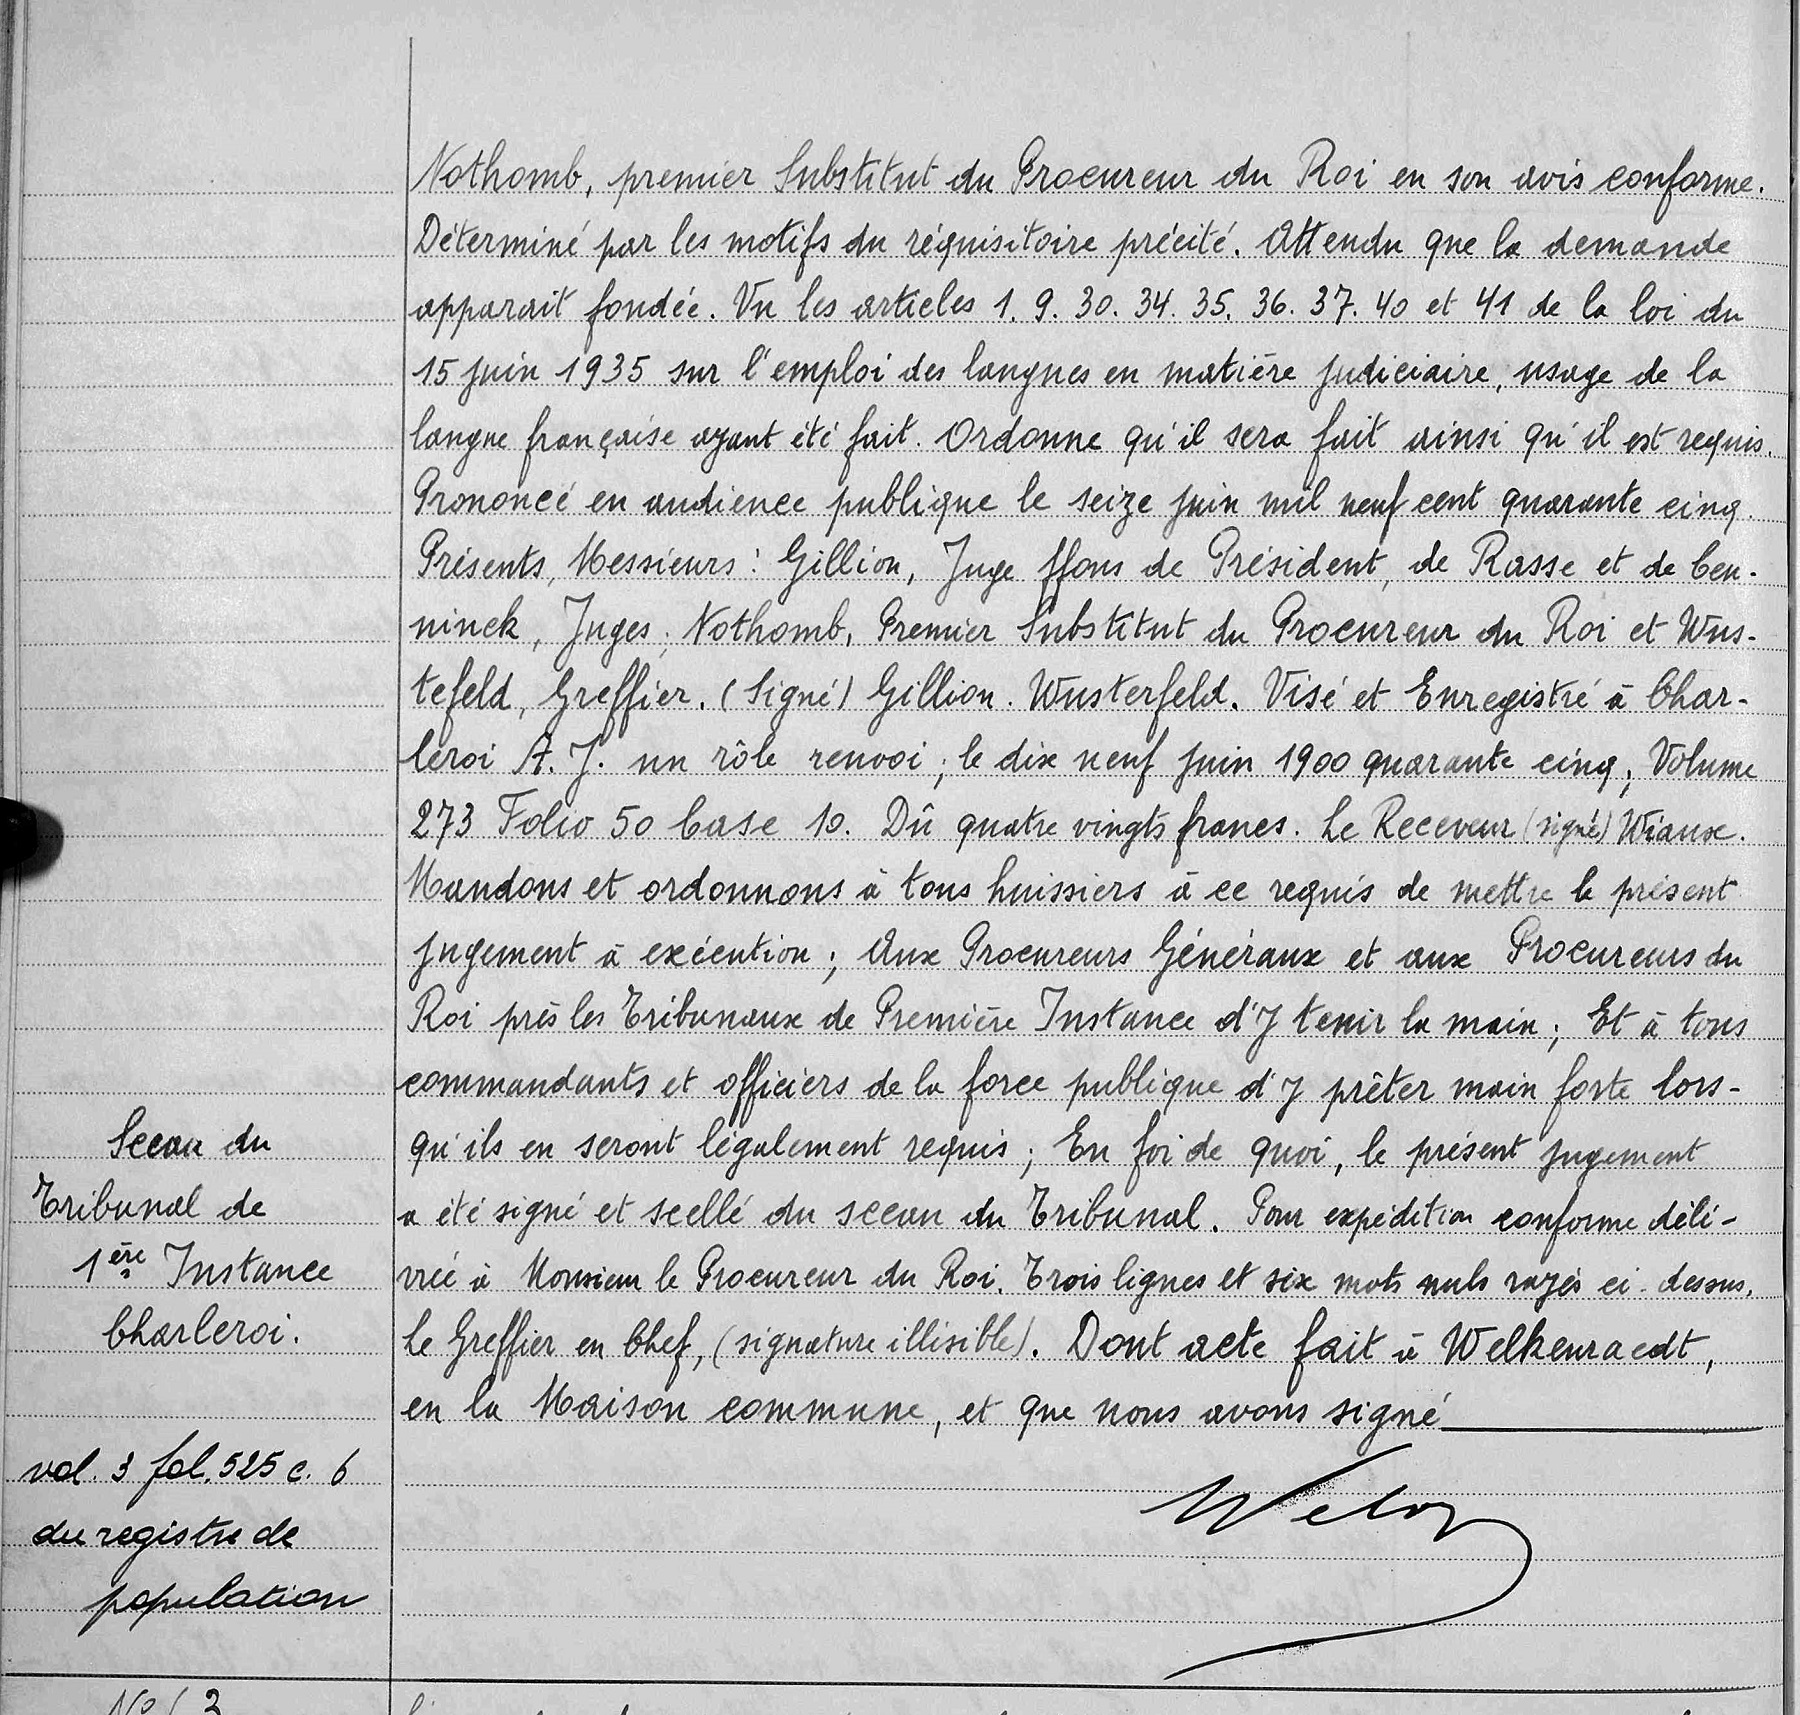 Nothomb, premier Substitut du Procureur du Roi en son avis conforme.
Déterminé par les motifs du réquisitoire précité. Attendu que la demande
apparait fondée. Vu les articles 1. 9. 30. 34. 35. 36. 37. 40 et 41 de la loi du
15 juin 1935 sur l'emploi des langues en matière judiciaire, usage de la
langue française ayant été fait. Ordonne qu'il sera fait ainsi qu'il est requis.
Prononcé en audience publique le seize juin mil neuf cent quarante cinq.
Présents, Messieurs : Gillion, Juge ffons de Président, de Rasse et de Cen-
ninck, Juges; Nothomb, Premier Substitut du Procureur du Roi et Wus-
tefeld, Greffier. (Signé) Gillion. Wusterfeld. Visé et Enregistré à Char-
leroi A. J. un rôle renvoi; le dix neuf juin 1900 quarante cinq, Volume
273 Folio 50 Case 10. Dû quatre vingts francs. Le Receveur (signé) Wiaux.
Mandons et ordonnons à tous huissiers à ce requis de mettre le présent
jugement à exécution; Aux Procureurs Généraux et aux Procureurs du
Roi près les Tribunaux de Première Instance d'y tenir la main; Et à tous
commandants et officiers de la force publique d'y prêter main forte lors-
qu'ils en seront légalement requis; En foi de quoi, le présent jugement
a été signé et scellé du sceau du Tribunal. Pour expédition conforme déli-
vrée à Monsieur le Procureur du Roi. Trois lignes et six mots nuls rayés ci-dessus.
Le Greffier en Chef, (signature illisible). Dont acte fait à Welkenraedt,
en la Maison commune, et que nous avons signé
Sceau du
Tribunal de
1ère Instance
Charleroi.
vol. 3 fol. 525 c. 6
du registre de
population